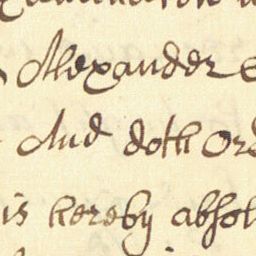 Alexander
And doth Ord
is hereby absol